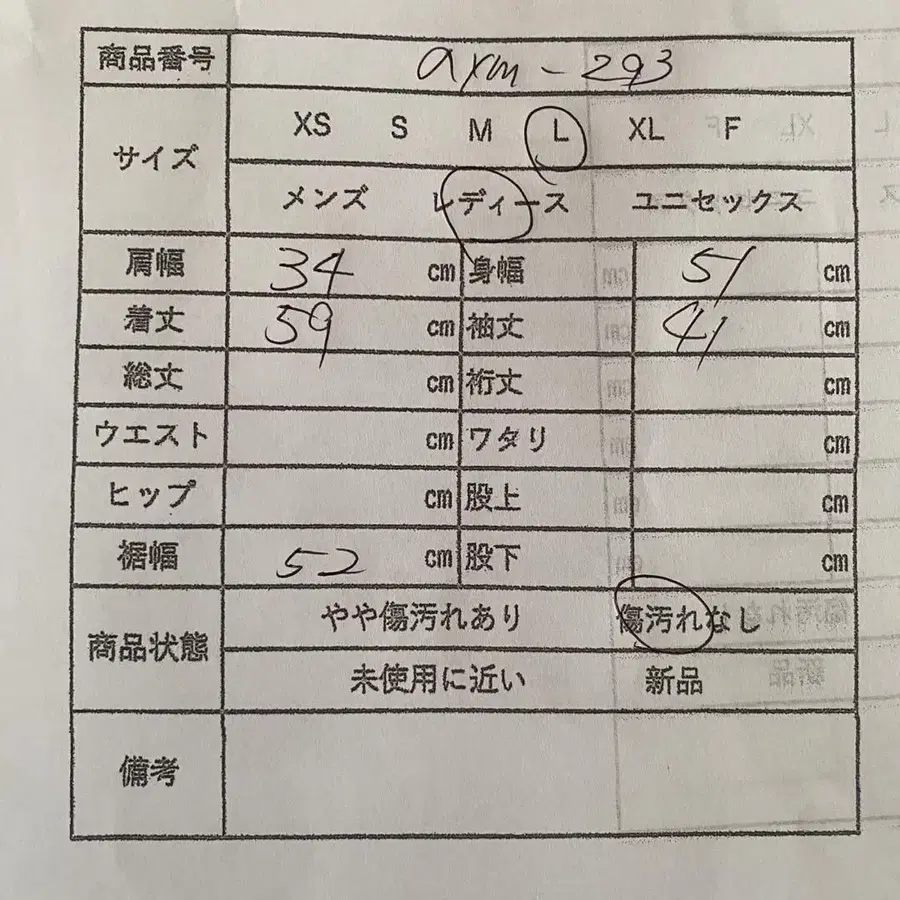 商品番号 axm-293
サイズ XS S M L XL F
メンズ レディース ユニセックス
肩幅 34 cm 身幅 51 cm
着丈 59 cm 袖丈 41 cm
総丈 cm 裄丈 cm
ウエスト cm ワタリ cm
ヒップ cm 股上 cm
裾幅 52 cm 股下 cm
商品状態 やや傷汚れあり 傷汚れなし
未使用に近い 新品
備考